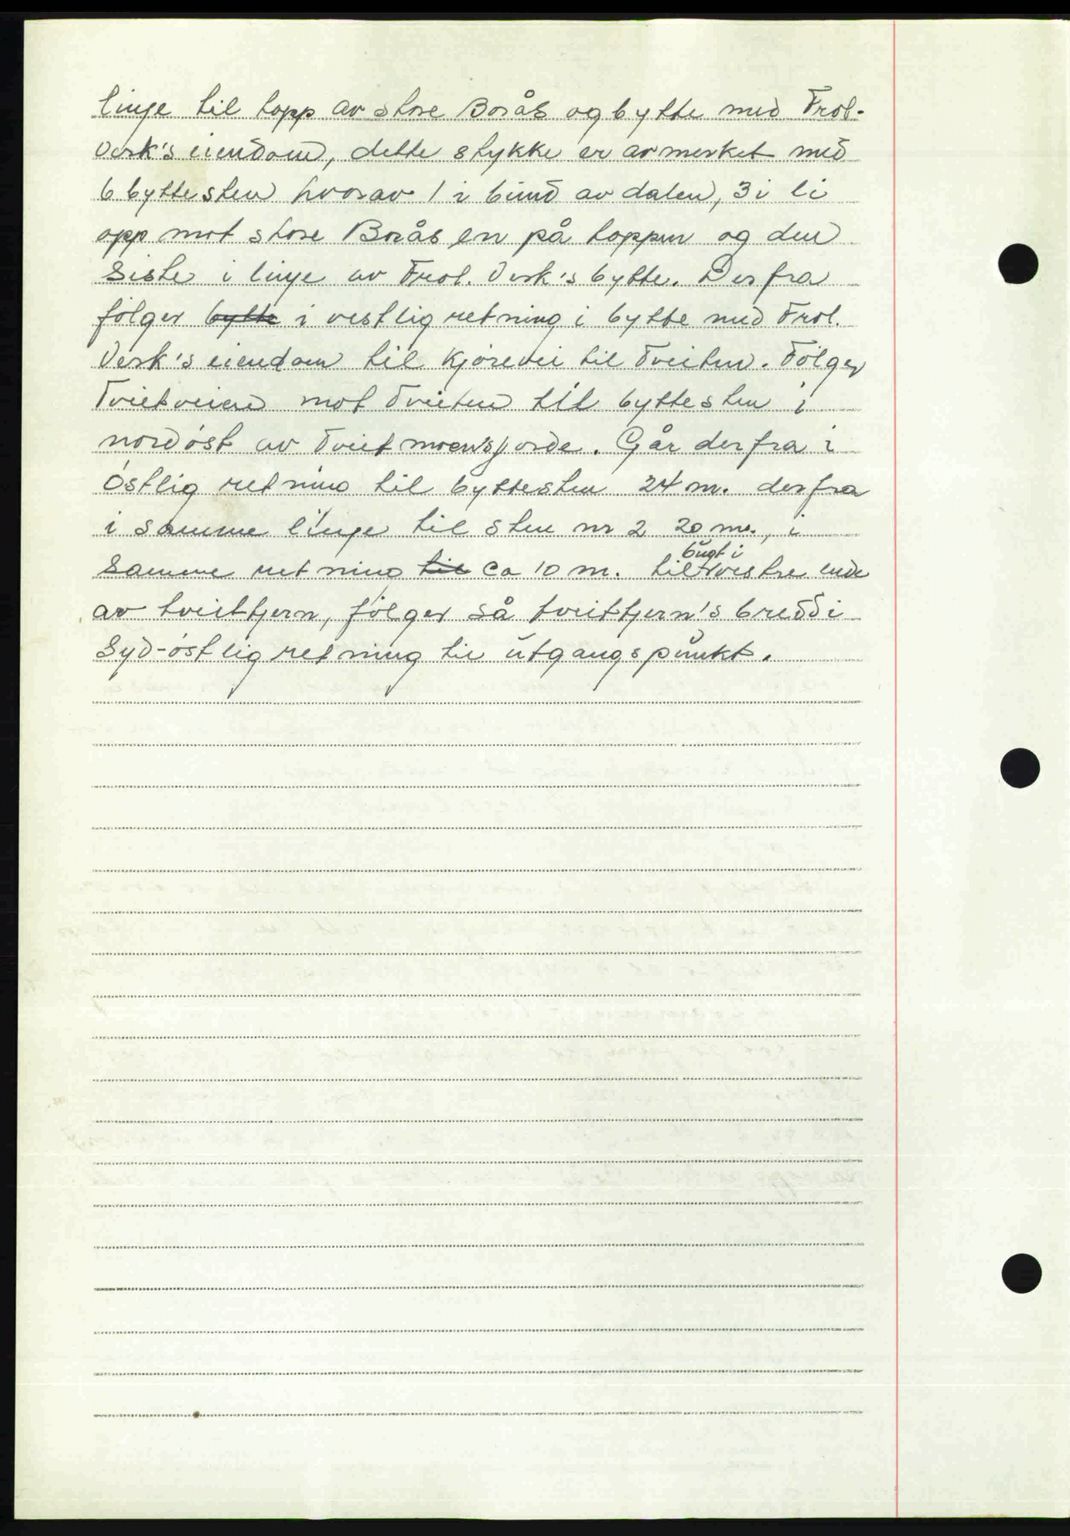 linje til topp av store Borås og bytte med Frol.
Verk's eiendom, dette stykke er avmerket med
6 byttesten hvorav 1 i bund av dalen, 3 i li
opp mot store Borås en på toppen og den
siste i linje av Frol. Verk's bytte. Derfra
følger bytte i vestlig retning i bytte med Frol.
Verk's eiendom til kjørevei til Tveiten. Følger
Tveitveien mot Tveiten til byttesten i
nordøst av Tveitmoensjorde. Går derfra i
østlig retning til byttesten 24 m. derfra
i samme linje til sten nr 2 20 m., i
samme retning til ca 10 m. til bugt i vestre ende
av tveittjern, følger så tveittjern's bredd i
Syd-østlig retning til utgangspunkt.